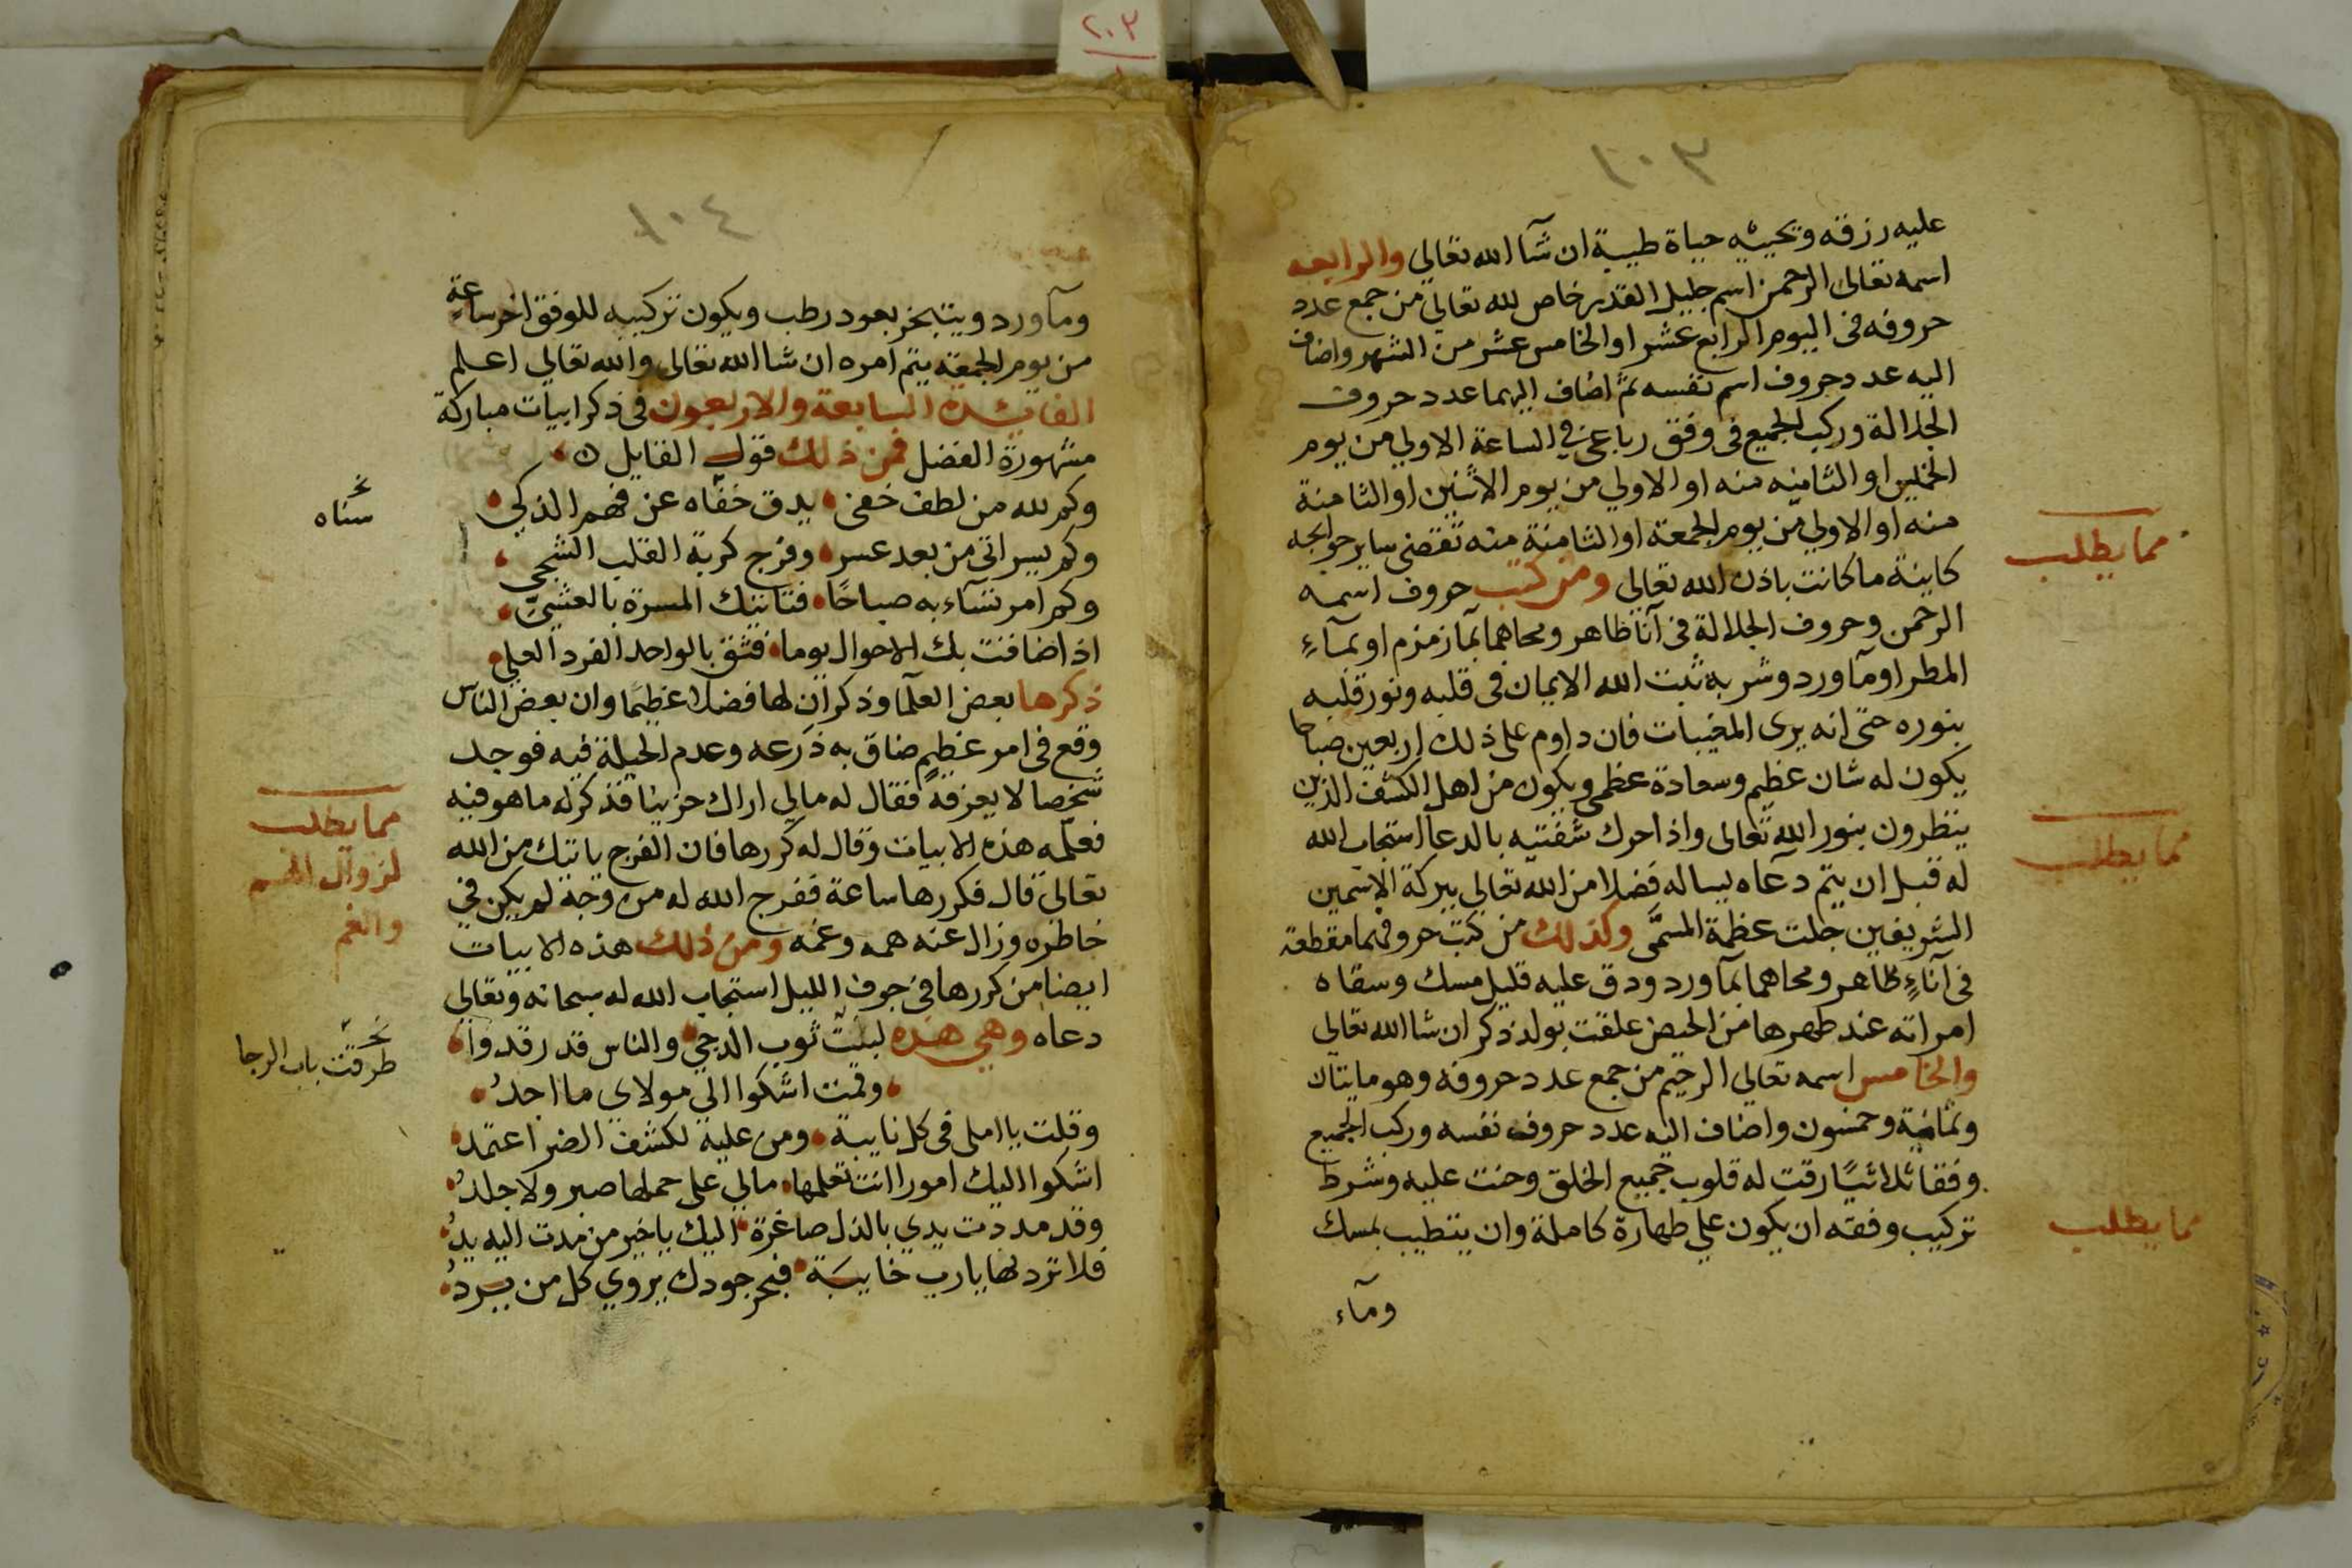 ٢٠٣
١٠٣
عليه رزقه ويحييه حياة طيبة ان شآ الله تعالي والرابعه
اسمه تعالى الرحمن اسم جليل القدير خاص لله تعالي من جمع عدد
حروفه في اليوم الرابع عشر او الخامس عشر من الشهر واضاف
اليه عدد حروف اسم نفسه ثم اضاف اليهما عدد حروف
الجلالة وركب الجميع في وفق رباعي في الساعة الاولي من يوم
الخميس او الثامنه منه او الاولي من يوم الاثنين او الثامنة
منه او الاولي من يوم الجمعة او الثامنة منه تقضى ساير حوايجه
كاينة ما كانت باذن الله تعالى ومن كتب حروف اسمه
الرحمن وحروف الجلالة في آنآ ظاهر ومحاهما بمآ زمزم او بمآءِ
المطر او مآ ورد وشربه ثبت الله الايمان في قلبه ونور قلبه
بنوره حتى انه يرى المغيبات فان داوم على ذلك اربعين صباحا
يكون له شان عظيم وسعادة عظمى ويكون من اهل الكشف الذين
ينظرون بنور الله تعالى واذا حرك شفتيه بالدعآ استجاب الله
له قبل ان يتم دعآه ليساله فضلا من الله تعالي ببركة الاسمين
الشريفين جلت عظمة المسمَّى وكذلك من كتب حروفهما مقطعة
في آنآءٍ طاهر ومحاهما بمآ ورد ودق عليه قليل مسك وسقاه
امراته عند طهرها من الحيض علقت بولد ذكر ان شا الله تعالى
والخامس اسمه تعالي الرحيم من جمع عدد حروفه وهو مايتان
وثمانية وخمسون واضاف اليه عدد حروف نفسه وركب الجميع
وفقا ثلاثيًا رقت له قلوب جميع الخلق وحنت عليه وشرط
تركيب وفقه ان يكون على طهارة كاملة وان يتطيب بمسك
ومآء
مما يطلب
مما يطلب
مما يطلب
١٠٤
ومآ ورد ويتبخر بعود رطب ويكون تركيبه للوفق اخر ساعة
من يوم الجمعة يتم امره ان شا الله تعالى والله تعالي اعلم
الفائدة السابعة والاربعون في ذكر ابيات مباركة
مشهورة الفضل فمن ذلك قول القايل
وكم لله من لطف خفي يدق خفاه عن فهم الذكي
وكم يسر اتى من بعد عسر وفرج كربة القلب الشجي
وكم امر تسآء به صباحًا فتاتيك المسرة بالعشيّ
اذا ضافت بك الاحوال يوما فثق بالواحد الفرد العلي
ذكرها بعض العلمآ وذكر ان لها فضلا عظيمًا وان بعض الناس
وقع في امر عظيم ضاق به ذرعه وعدم الحيلة فيه فوجد
شخصا لا يعرفه فقال له مالي اراك حزينا فذكر له ما هو فيه
فعلّمه هذه الابيات وقال له كررها فان الفرج ياتيك من الله
تعالى قال فكررها ساعة ففرج الله له من وجه لم يكن في
خاطره وزال عنه همه وغمه ومن ذلك هذه الابيات
ايضا من كررها في جوف الليل استجاب الله له سبحانه وتعالي
دعاه وهي هذه لبست ثوب الدجي والناس قد رقدوا
وقمت اشكوا الي مولاى ما اجدُ
وقلت يا املى في كل نايبة ومن عليه لكشف الضر اعتمدُ
اشكوا اليك امورا انت تعلمها مالي على حملها صبر ولا جلدُ
وقد مددت يدي بالذل صاغرة اليك يا خير من مدت اليه يدُ
فلا تردنها يا رب خايبَة فبحر جودك يروي كل من يردُ
نخـ
سناه
مما يطلب
لزوال الهم
والغم
نخـ
طرقت باب الرجا